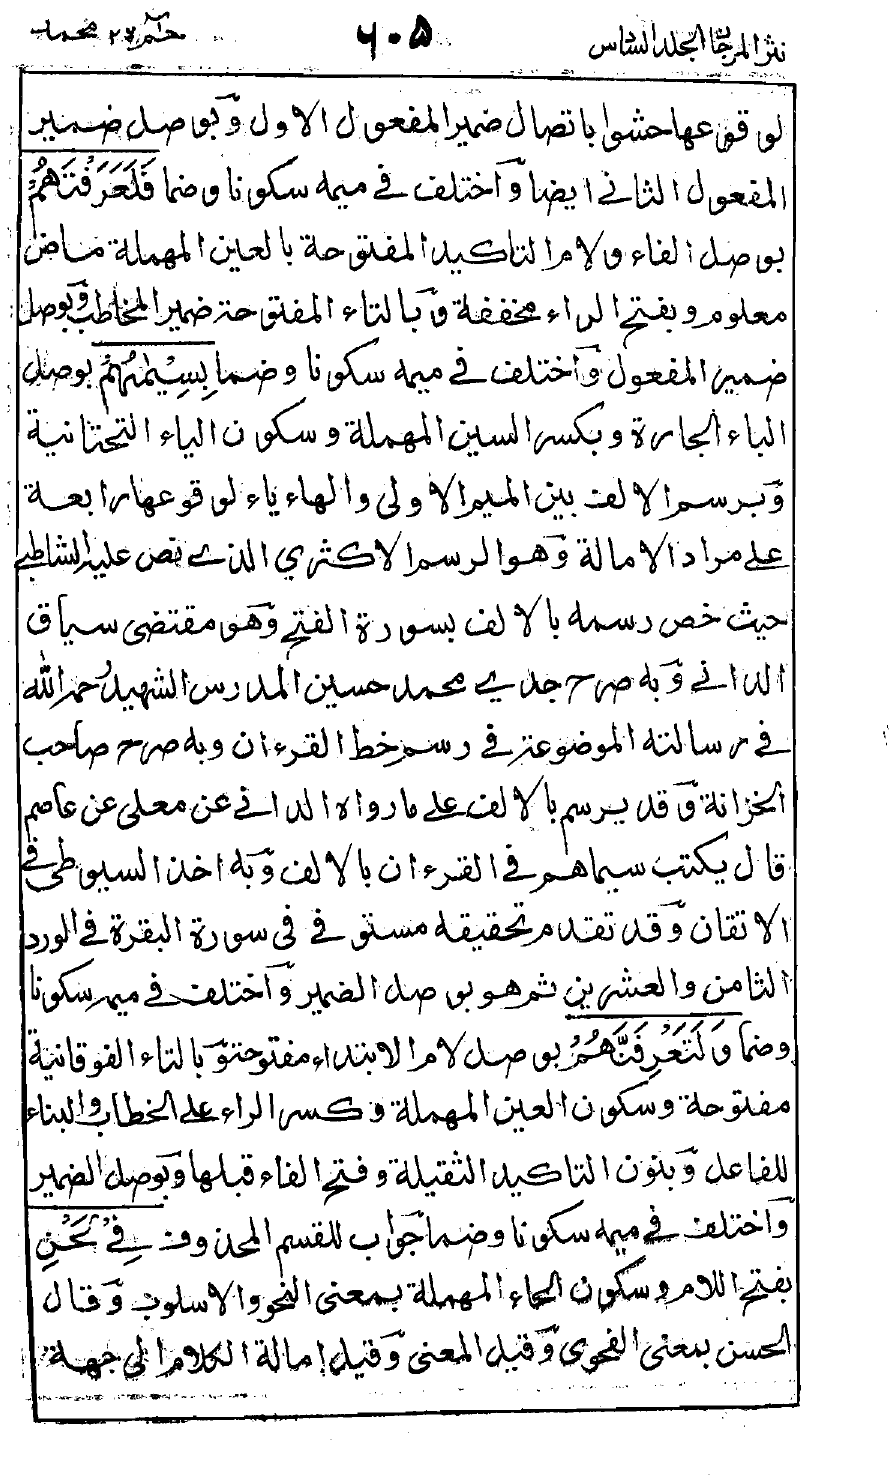 نثر المرجان الجلد السادس ٦٠٥ حٰم ٢٦ محمد
لوقوعها حشوا باتصال ضمير المفعول الاول وبوصل ضمير
المفعول الثاني ايضا واختلف في ميمه سكونا وضما فَلَعَرَفْتَهُمْ
بوصل الفاء ولام التاكيد المفتوحة بالعين المهملة ماض
معلوم وبفتح الراء مخففة وبالتاء المفتوحة ضمير المخاطب وبوصل
ضمير المفعول واختلف في ميمه سكونا وضما بِسِيْمٰىهُمْ بوصل
الباء الجارة وبكسر السين المهملة وسكون الياء التحتانية
وبرسم الالف بين الميم الاولى والهاء ياء لوقوعها رابعة
على مراد الامالة وهو الرسم الاكثري الذي نص عليه الشاطبي
حيث خص رسمه بالالف بسورة الفتح وهو مقتضى سياق
الداني وبه صرح جدي محمد حسين المدرس الشهيد رحمه الله
في رسالته الموضوعة في رسم خط القرءان وبه صرح صاحب
الخزانة وقد يرسم بالالف على ما رواه الداني عن معلى عن عاصم
قال يكتب سيماهم في القرءان بالالف وبه اخذ السيوطي في
الاتقان وقد تقدم تحقيقه مستوفى في سورة البقرة في الورد
الثامن والعشرين ثم هو بوصل الضمير واختلف في ميمه سكونا
وضما وَلَتَعْرِفَنَّهُمْ بوصل لام الابتداء مفتوحة وبالتاء الفوقانية
مفتوحة وسكون العين المهملة وكسر الراء على الخطاب والبناء
للفاعل وبنون التاكيد الثقيلة وفتح الفاء قبلها وبوصل الضمير
واختلف في ميمه سكونا وضما جواب للقسم المحذوف فِيْ لَحْنِ
بفتح اللام وسكون الحاء المهملة بمعنى النحو والاسلوب وقال
الحسن بمعنى الفحوى وقيل المعنى وقيل إمالة الكلام الى جهة